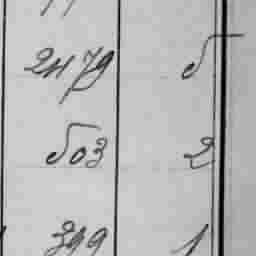 2479 5
503 2
399 1